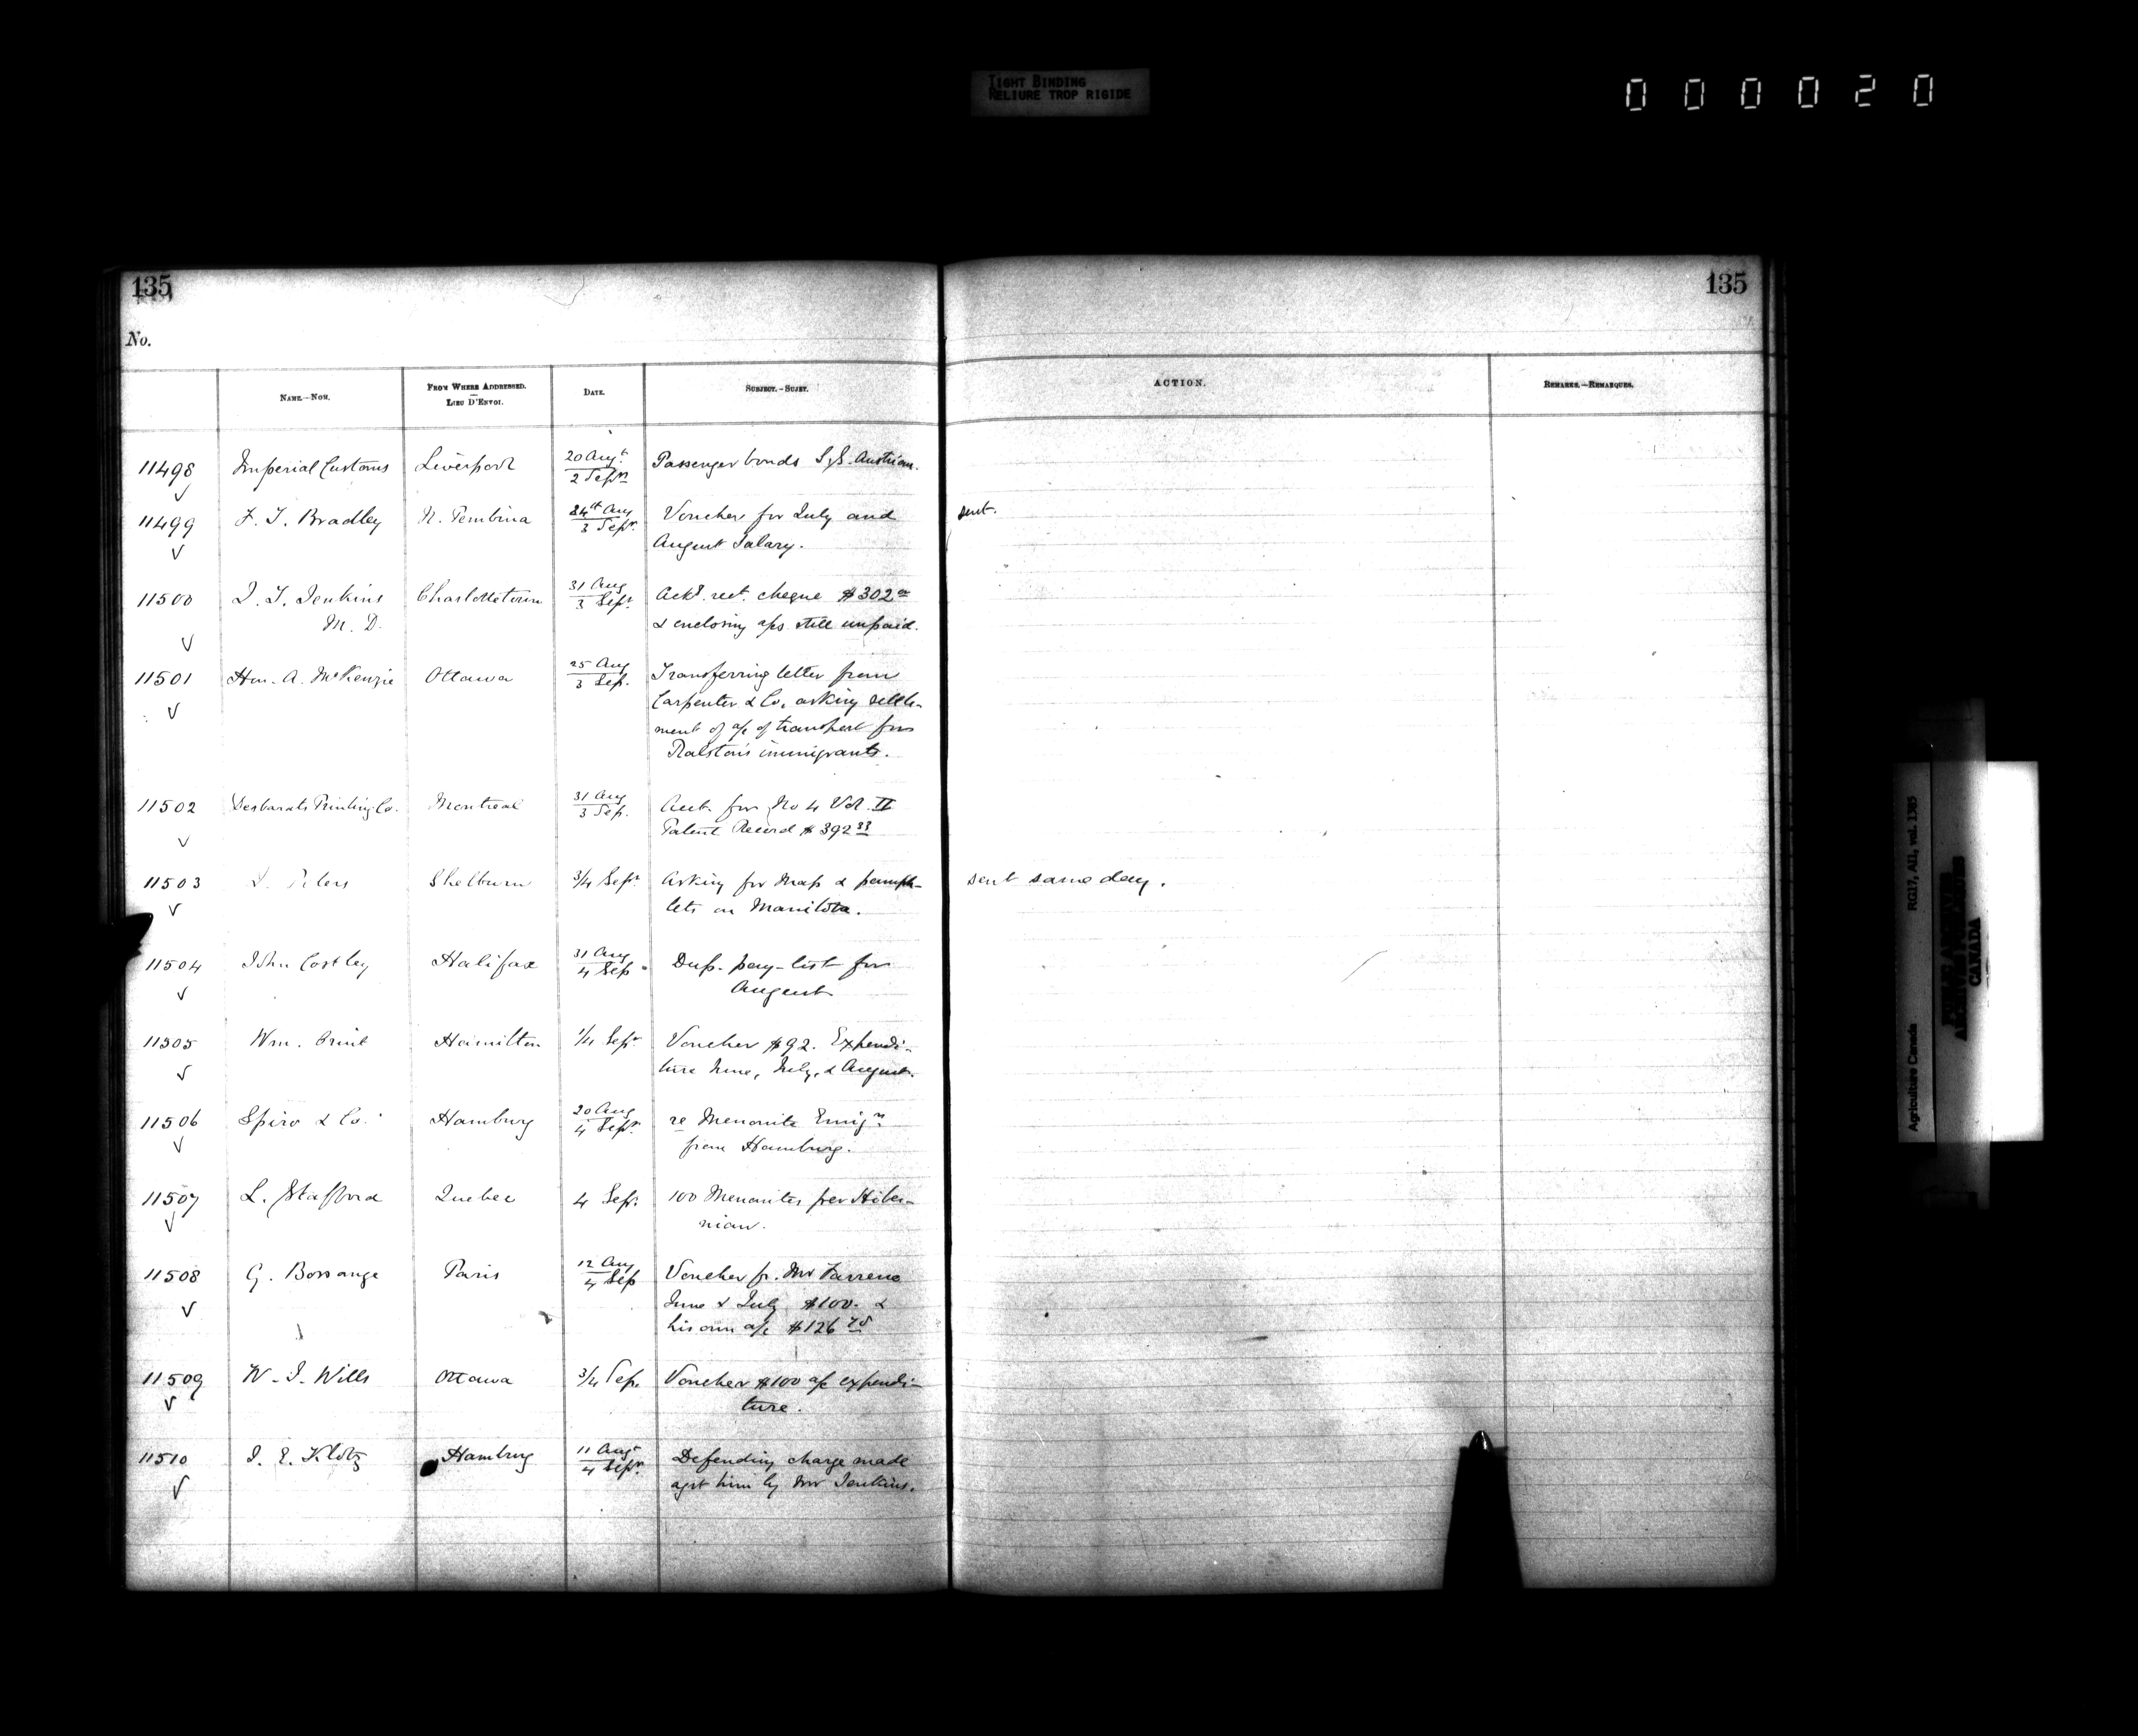 TIGHT BINDING
RELIURE TROP RIGIDE
000020
135 135
No.
NAME.—NOM. FROM WHERE ADDRESSED. — LIEU D'ENVOI. DATE. SUBJECT.—SUJET. ACTION. REMARKS.—REMARQUES.
11498 Imperial Customs Liverpool 20 Augt. / 2 Sepr. Passenger bonds S.S. Austrian.
11499 F. T. Bradley N. Pembina 24th Aug / 3 Sepr. Voucher for July and sent.
August Salary.
11500 J. T. Jenkins Charlottetown 31 Aug / 3 Sepr. Ackg. rect. cheque $302
M. D. & enclosing a/cs still unpaid.
11501 Hon. A. McKenzie Ottawa 25 Aug / 3 Sep. Transferring letter from
Carpenter & Co. asking settle-
ment of a/c of transport for
Ralston's immigrants.
11502 Desbarats Printing Co. Montreal 31 Aug / 3 Sep. Acct. for No 4 Vol. II
Patent Record $392 33
11503 Peters Shelburn 3/4 Sepr. Asking for Map & pamph- sent same day.
lets on Manitoba.
11504 John Costley Halifax 31 Aug / 4 Sep. Dup. pay-list for
August
11505 Wm. Hamilton 1/4 Sepr. Voucher $92. Expendi-
ture June, July, & August.
11506 Spiro & Co. Hamburg 20 Aug / 4 Sepr. re Menonite Emign.
from Hamburg.
11507 L. Stafford Quebec 4 Sep. 100 Menonites per Hiber-
nian.
11508 G. Bossange Paris 12 Aug / 4 Sep Voucher fr. Mr
June & July $100. &
his own a/c $126
11509 W. J. Wills Ottawa 3/4 Sep. Voucher $100 a/c expendi-
ture.
11510 J. E. Klotz Hamburg 11 Augt / 4 Sepr. Defending charge made
agst him by Mr Jenkins.
Agriculture Canada RG17, AII, vol. 1385
PUBLIC ARCHIVES
ARCHIVES PUBLIQUES
CANADA